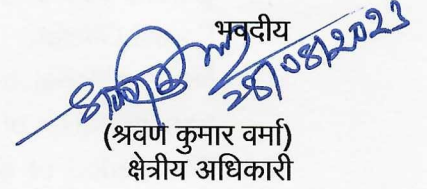 भवदीय
28/08/2023
(श्रवण कुमार वर्मा)
क्षेत्रीय अधिकारी